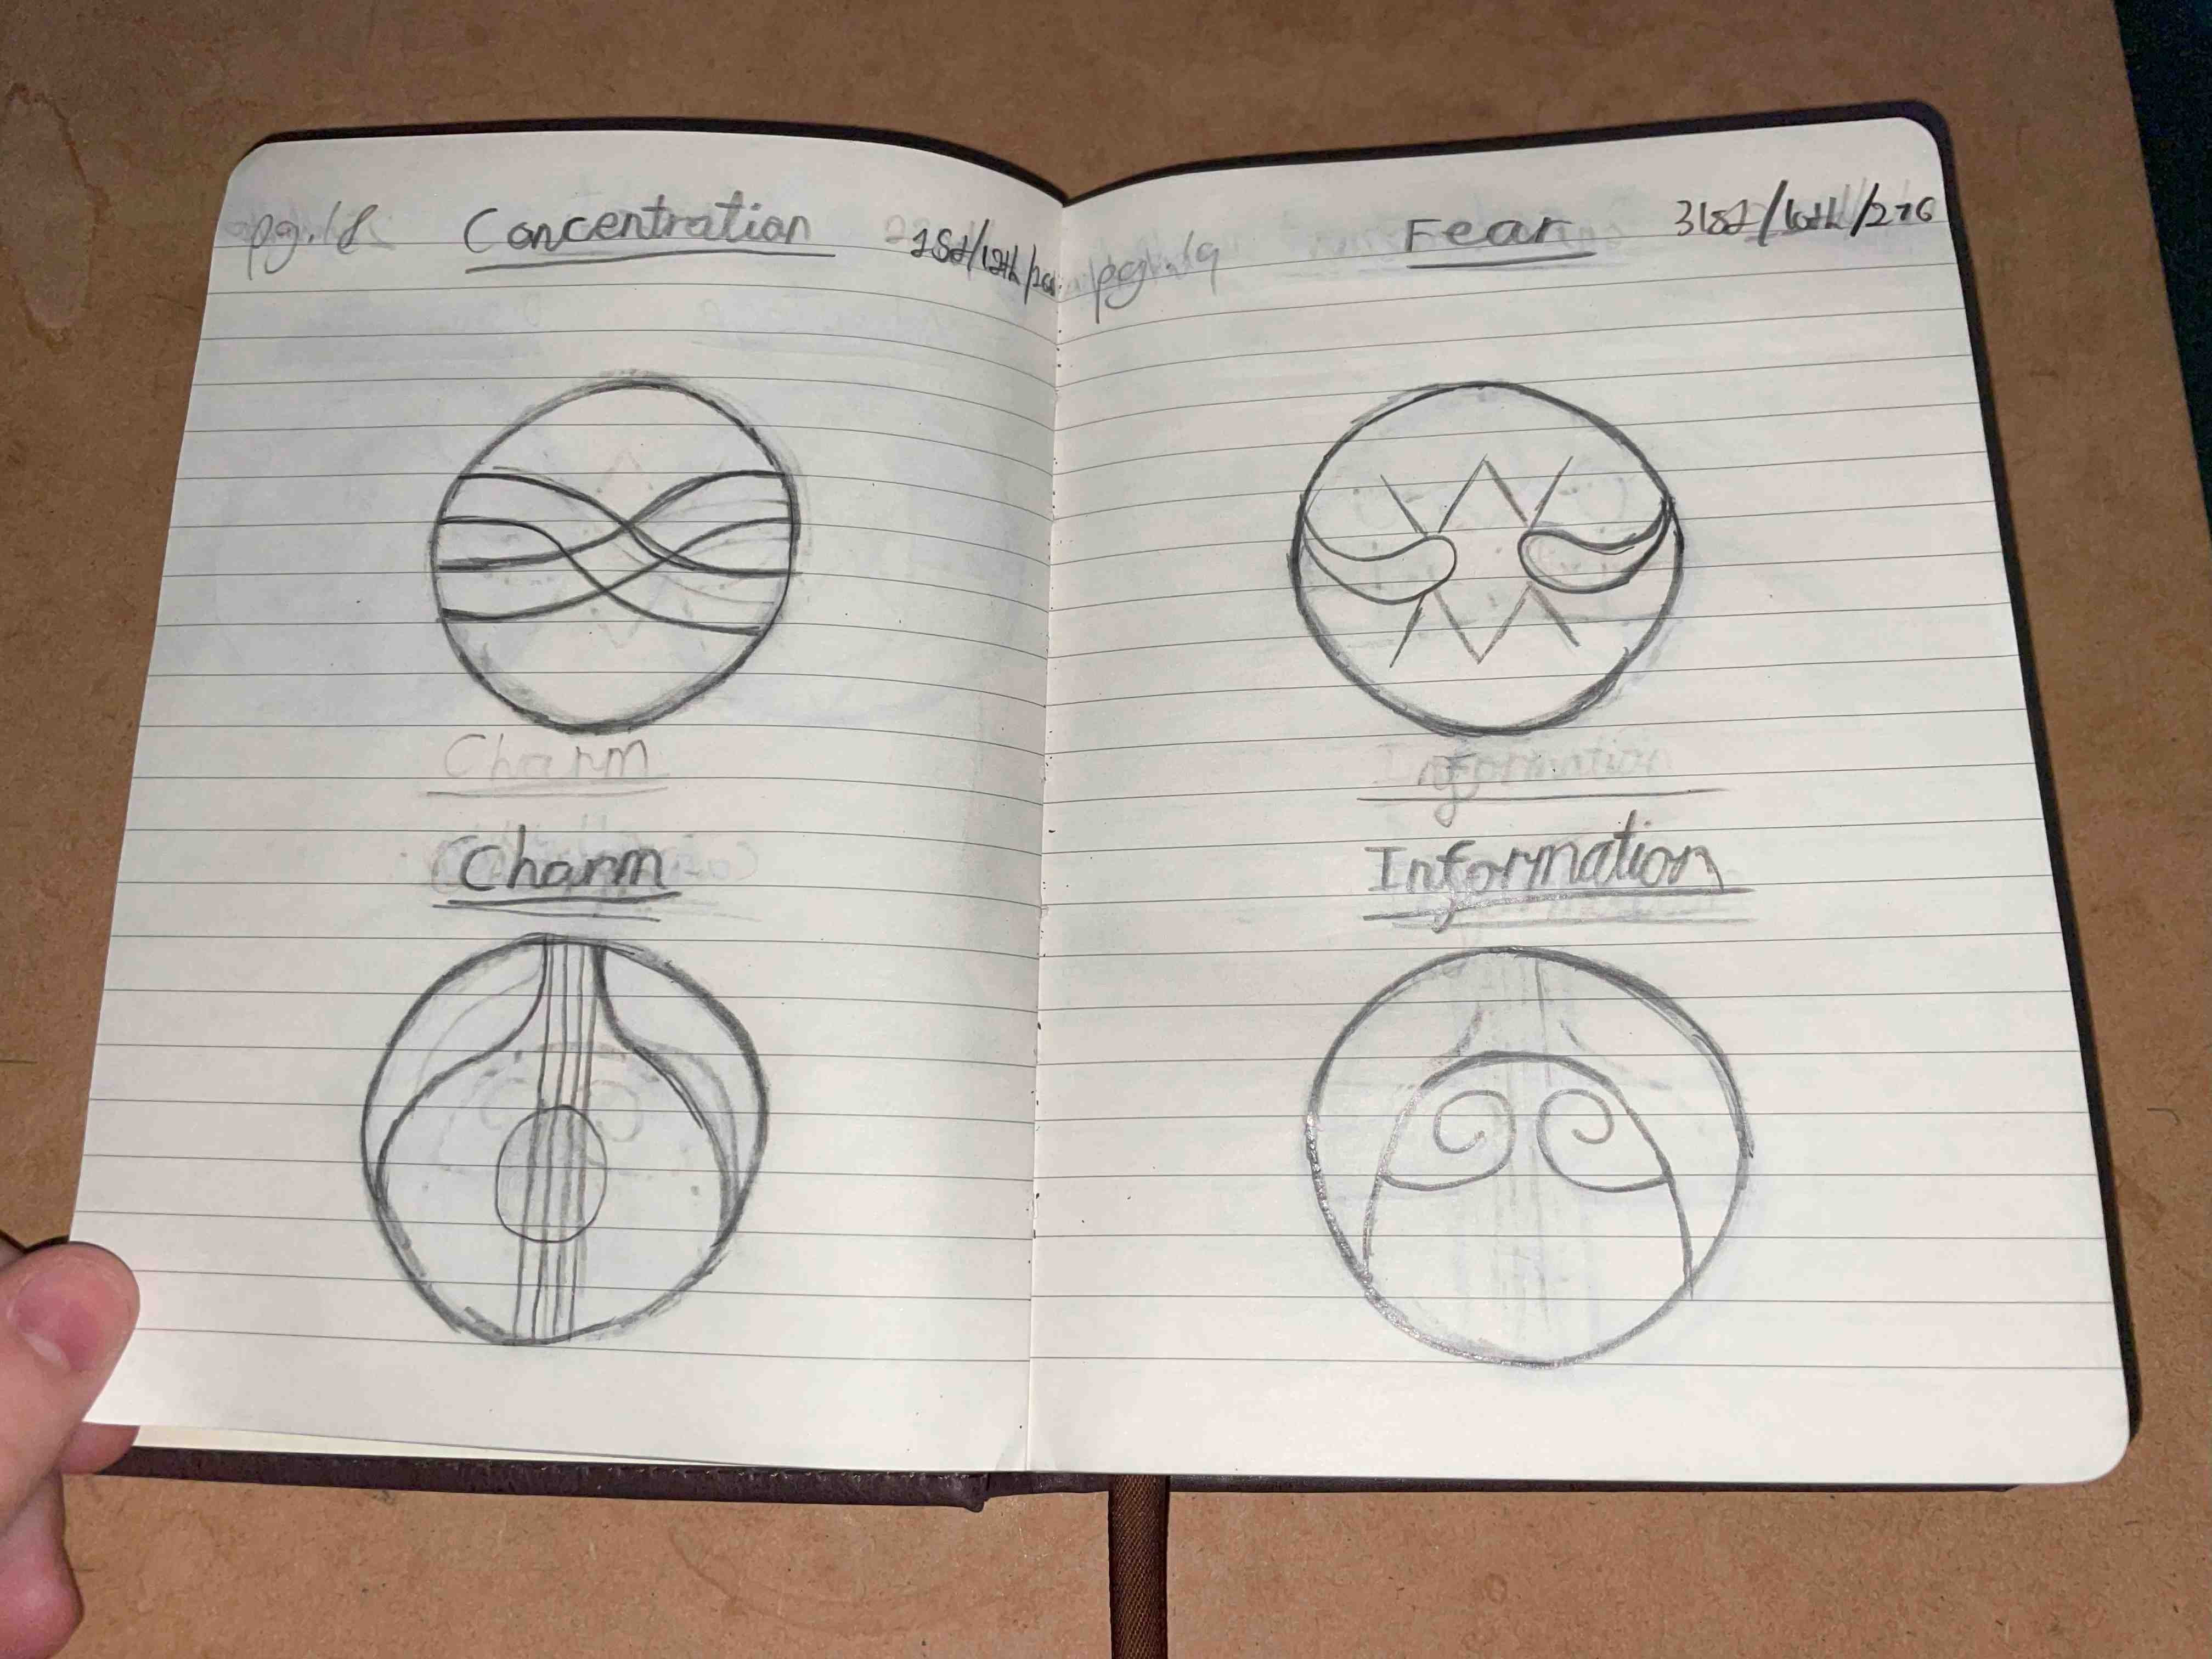 pg.18 Concentration 1st/12th/
Charm
Charm
pg.19 Fear 31st/10th/276
Information
Information